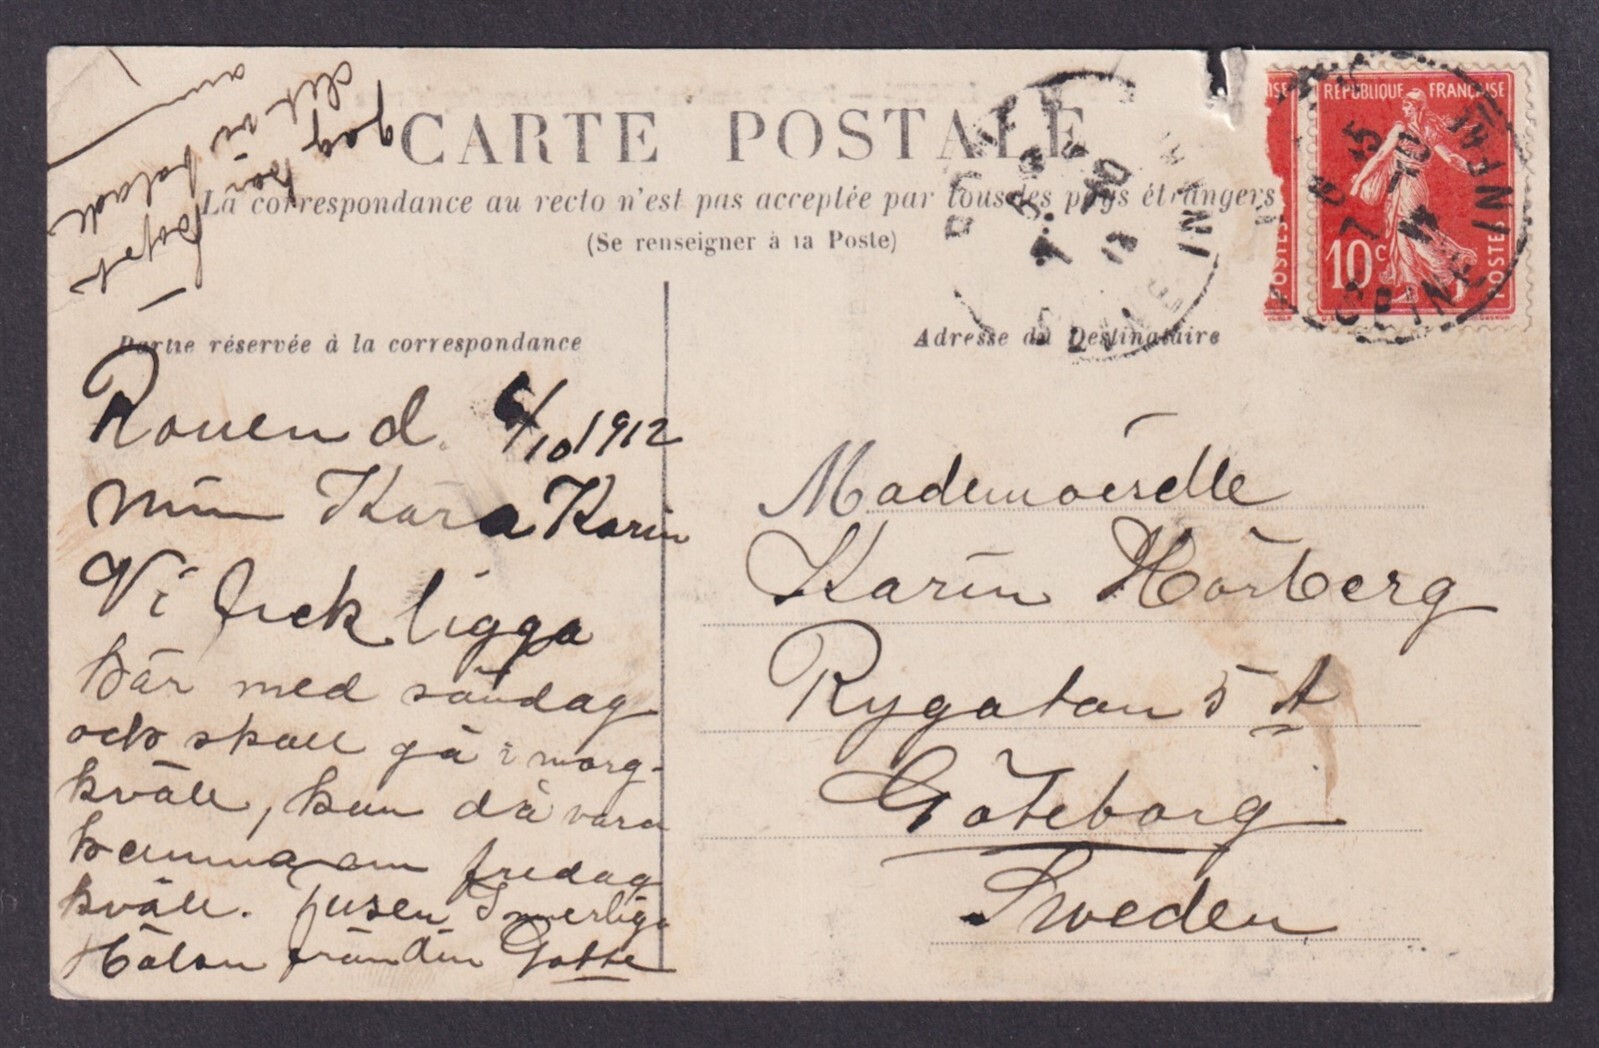 CARTE POSTALE
La correspondance au recto n'est pas acceptée par tous les pays étrangers
(Se renseigner à la Poste)
Partie réservée à la correspondance
Adresse du Destinataire
RÉPUBLIQUE FRANÇAISE
10c
POSTES
POSTES
7 10
12
SEINE INF
Rouen d. 6/10 1912
min Kära Karin
Vi fick ligga
här med söndag
och skall gå i morg-
kväll, kan då vara
hemma om fredag
kväll. Tusen Innerliga
Hälsn från din Gotte
Mademoiselle
Karin Hörberg
Rygatan 5 A
Göteborg
Sweden
jag har
det vi